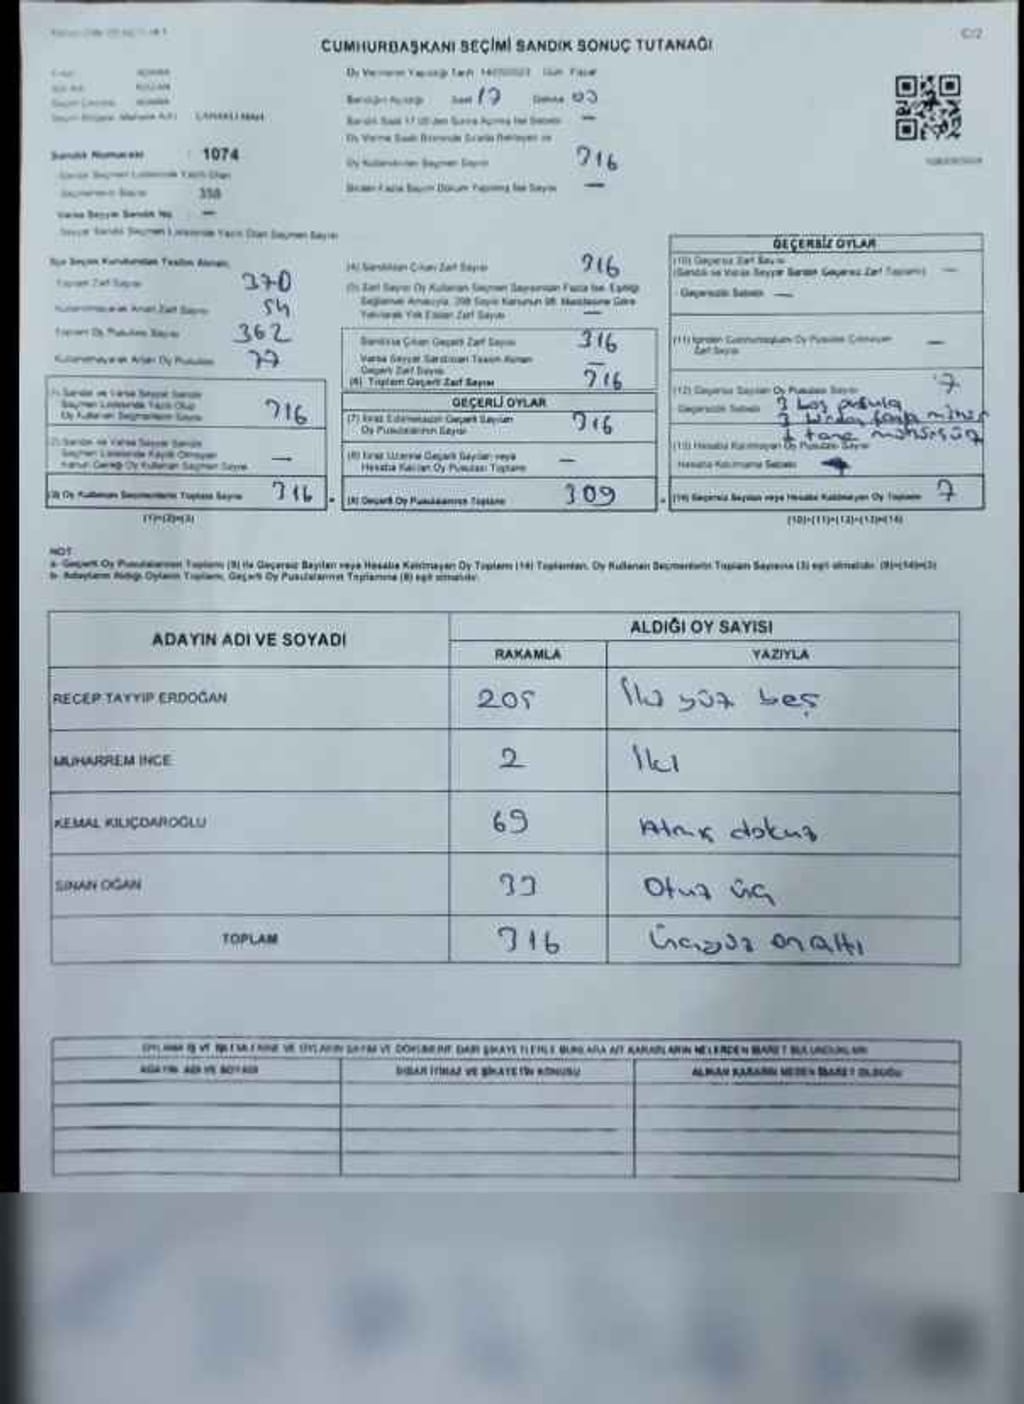 C/2
CUMHURBAŞKANI SEÇİMİ SANDIK SONUÇ TUTANAĞI
Oy Vermenin Yapıldığı Tarih 14/05/2023 Gün Pazar
Sandığın Açıldığı Saat 17 Dakika 03
Sandık Saat 17.00'den Sonra Açılmış İse Sebebi —
Oy Verme Saati Bitiminde Sırada Bekleyen ve
Oy Kullandırılan Seçmen Sayısı 316
Birden Fazla Sayım Döküm Yapılmış İse Sayısı —
Sandık Numarası : 1074
Sandık Seçmen Listesinde Yazılı Olan
Seçmenlerin Sayısı 358
Varsa Seyyar Sandık No : —
Seyyar Sandık Seçmen Listesinde Yazılı Olan Seçmen Sayısı
İlçe Seçim Kurulundan Teslim Alınan;
Toplam Zarf Sayısı 370
Kullanılmayarak Artan Zarf Sayısı 54
Toplam Oy Pusulası Sayısı 362
Kullanılmayarak Artan Oy Pusulası
(1) Sandık ve Varsa Seyyar Sandık
Seçmen Listesinde Yazılı Olup
Oy Kullanan Seçmenlerin Sayısı 316
(2) Sandık ve Varsa Seyyar Sandık
Seçmen Listesinde Kayıtlı Olmayan
Kanun Gereği Oy Kullanan Seçmen Sayısı —
(3) Oy Kullanan Seçmenlerin Toplam Sayısı 316
(1)+(2)=(3)
(4) Sandıktan Çıkan Zarf Sayısı 316
(5) Zarf Sayısı Oy Kullanan Seçmen Sayısından Fazla İse, Eşitliği
Sağlamak Amacıyla, 298 Sayılı Kanunun 98. Maddesine Göre
Yakılarak Yok Edilen Zarf Sayısı —
Sandıkta Çıkan Geçerli Zarf Sayısı 316
Varsa Seyyar Sandıktan Teslim Alınan
Geçerli Zarf Sayısı —
(6) Toplam Geçerli Zarf Sayısı 316
GEÇERLİ OYLAR
(7) İtiraz Edilmeksizin Geçerli Sayılan
Oy Pusulalarının Sayısı 316
(8) İtiraz Üzerine Geçerli Sayılan veya
Hesaba Katılan Oy Pusulası Toplamı —
(9) Geçerli Oy Pusulalarının Toplamı 309
GEÇERSİZ OYLAR
(10) Geçersiz Zarf Sayısı
(Sandık ve Varsa Seyyar Sandık Geçersiz Zarf Toplamı) —
Geçersizlik Sebebi —
(11) İçinden Cumhurbaşkanı Oy Pusulası Çıkmayan
Zarf Sayısı —
(12) Geçersiz Sayılan Oy Pusulası Sayısı 7
Geçersizlik Sebebi 3 boş pusula
3 birden fazla mühür
1 tane mühürsüz
(13) Hesaba Katılmayan Oy Pusulası Sayısı
Hesaba Katılmama Sebebi
(14) Geçersiz Sayılan veya Hesaba Katılmayan Oy Toplamı 7
(10)+(11)+(12)+(13)=(14)
NOT:
a- Geçerli Oy Pusulalarının Toplamı (9) ile Geçersiz Sayılan veya Hesaba Katılmayan Oy Toplamı (14) Toplamları, Oy Kullanan Seçmenlerin Toplam Sayısına (3) eşit olmalıdır. (9)+(14)=(3)
b- Adayların Aldığı Oyların Toplamı, Geçerli Oy Pusulalarının Toplamına (9) eşit olmalıdır.
ADAYIN ADI VE SOYADI
ALDIĞI OY SAYISI
RAKAMLA YAZIYLA
RECEP TAYYİP ERDOĞAN 205 İki yüz beş
MUHARREM İNCE 2 İki
KEMAL KILIÇDAROĞLU 69 Atmış dokuz
SİNAN OĞAN 33 Otuz üç
TOPLAM 316 Üçyüz onaltı
ADAYIN ADI VE SOYADI
İTİRAZ VE ŞİKAYETİN KONUSU
ALINAN KARARIN NEDEN İBARET OLDUĞU